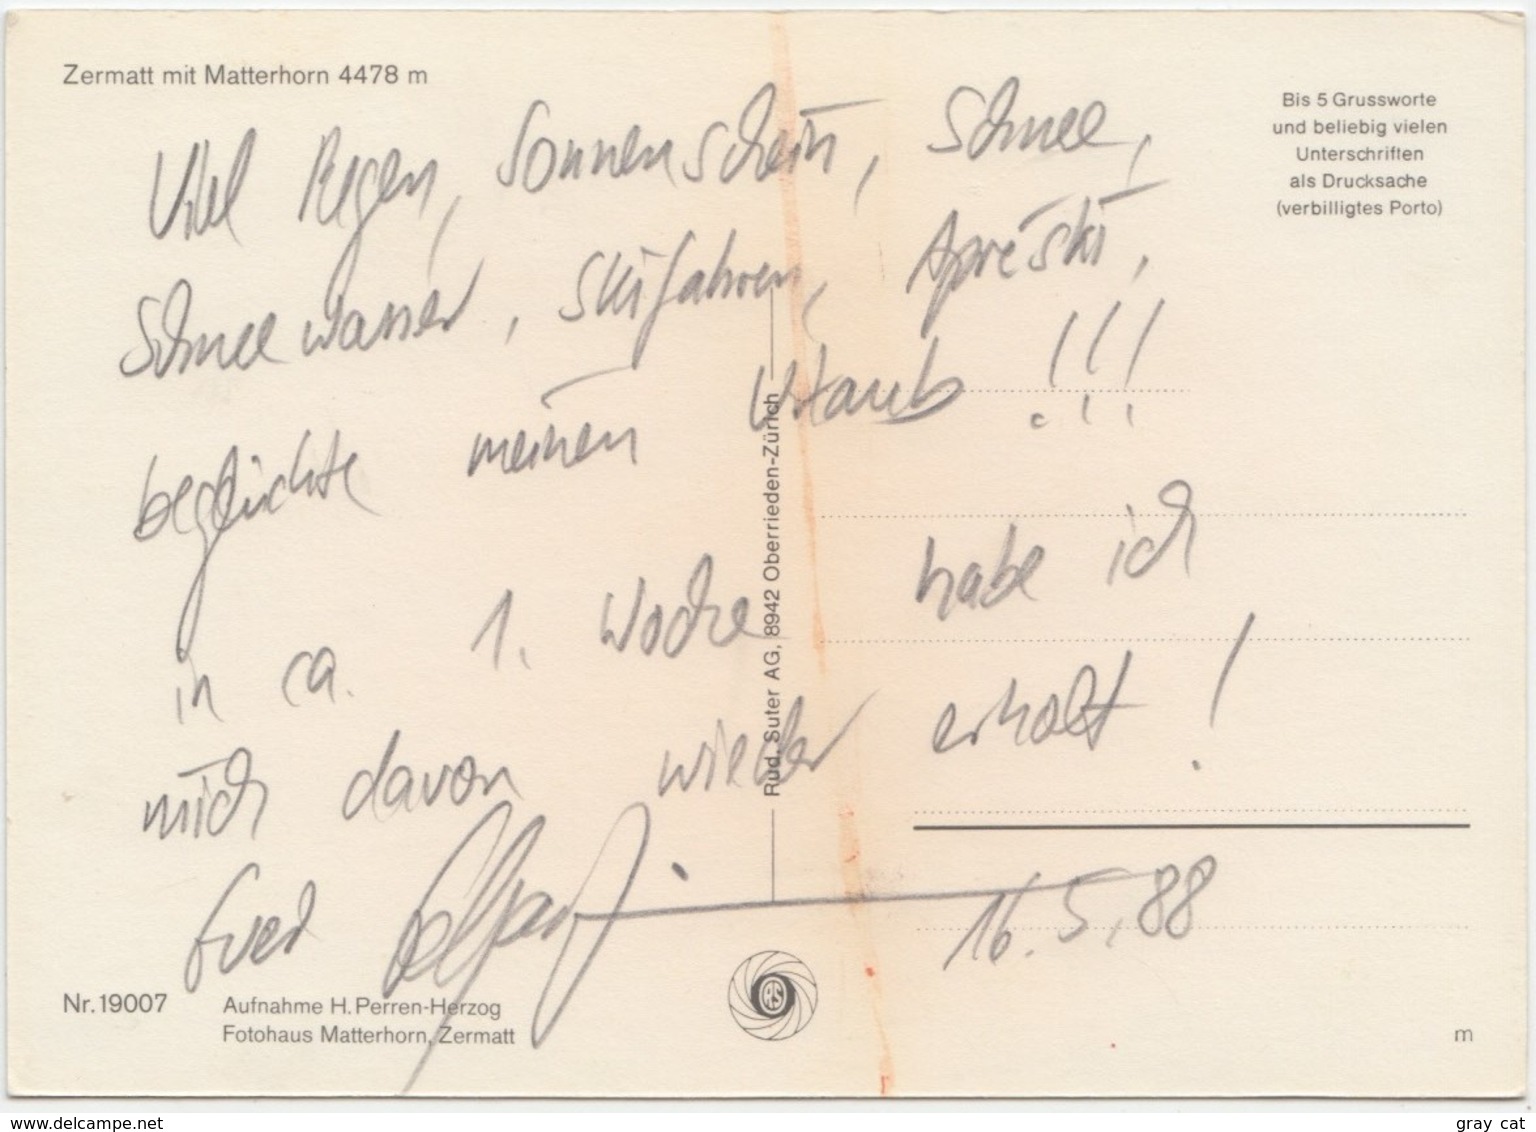 Zermatt mit Matterhorn 4478 m
Bis 5 Grussworte
und beliebig vielen
Unterschriften
als Drucksache
(verbilligtes Porto)
Viel Regen, Sonnenschein, Schnee,
Schneewasser, Skifahren, Apréski,
beglückte meinen Urlaub !!!
in ca. 1. Woche habe ich
mich davon wieder erholt !
Euer
16.5.88
Rud. Suter AG, 8942 Oberrieden-Zürich
Nr. 19007
Aufnahme H. Perren-Herzog
Fotohaus Matterhorn, Zermatt
RS
m
www.delcampe.net
gray cat